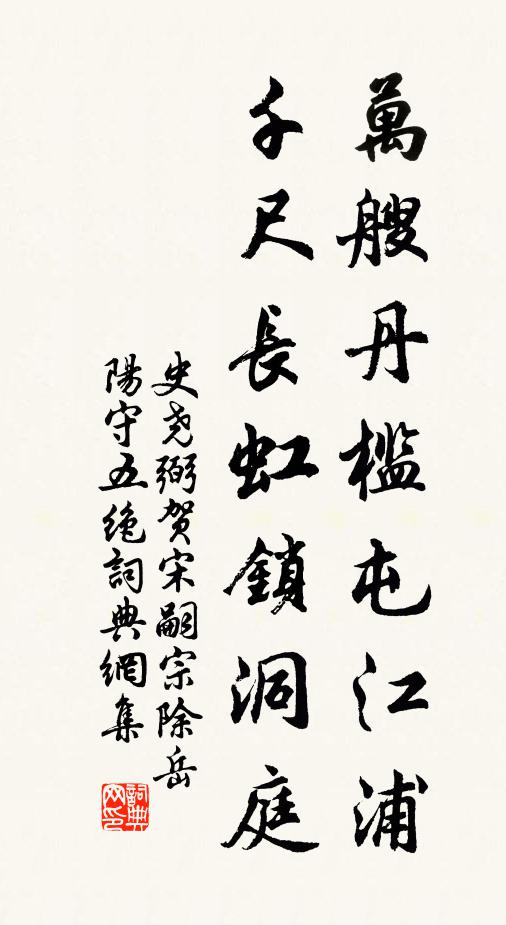 萬艘丹檻屯江浦
千尺長虹鎖洞庭
史尧弼贺宋嗣宗除岳
陽守五绝詞典網集
詞典网印